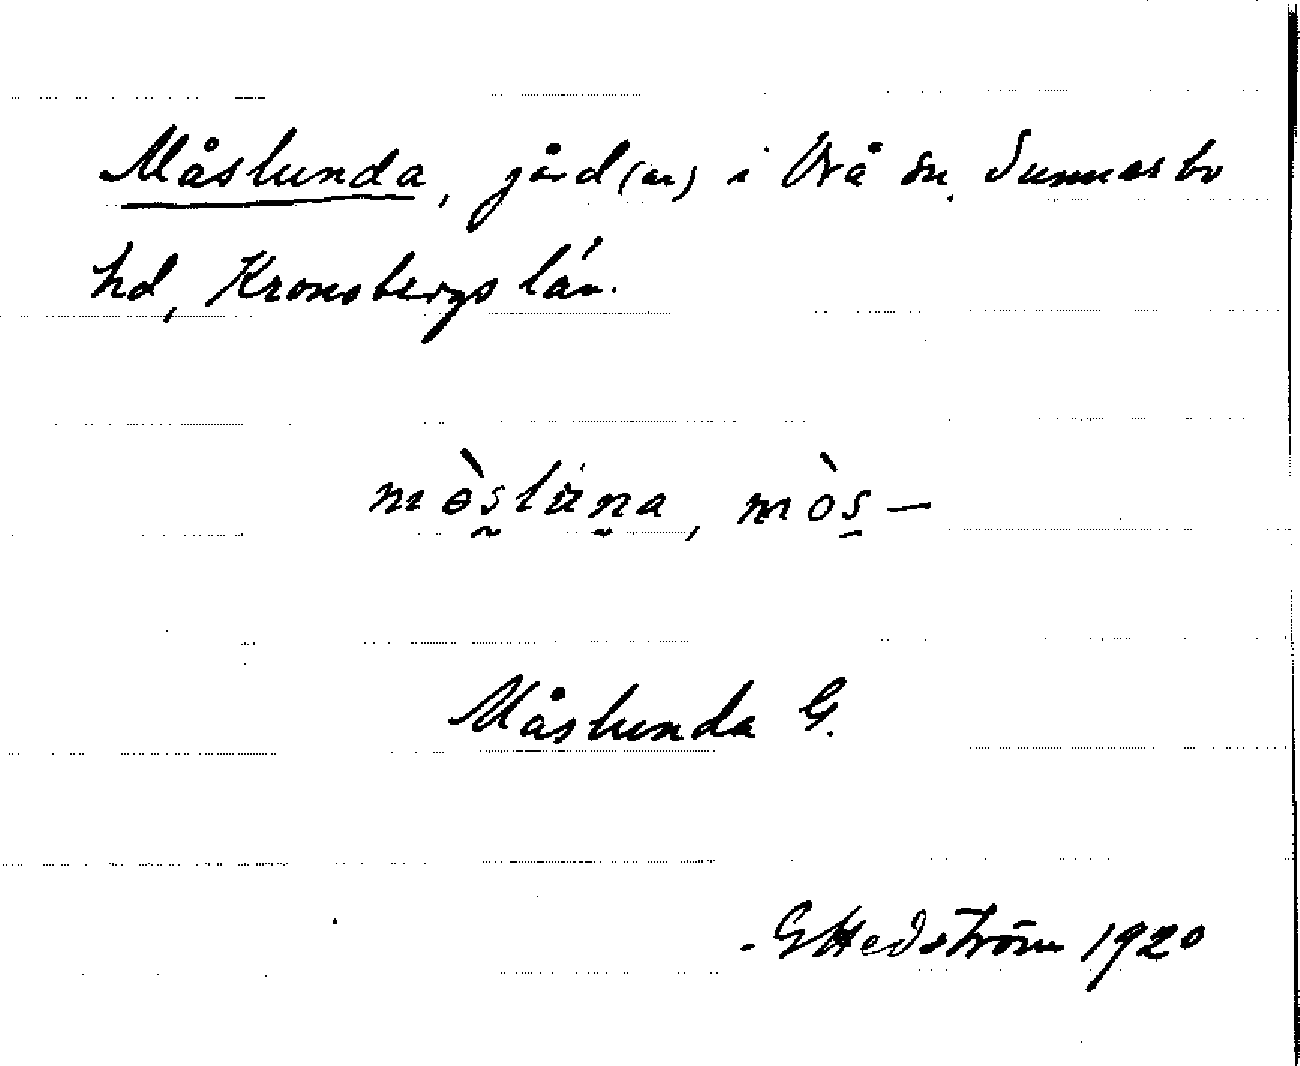 Måslunda, gård(ar) i Vrå sn, Sunnerbo
hd, Kronobergs län.
mòsluna, mòs–
Måslunda G.
G Hedström 1920